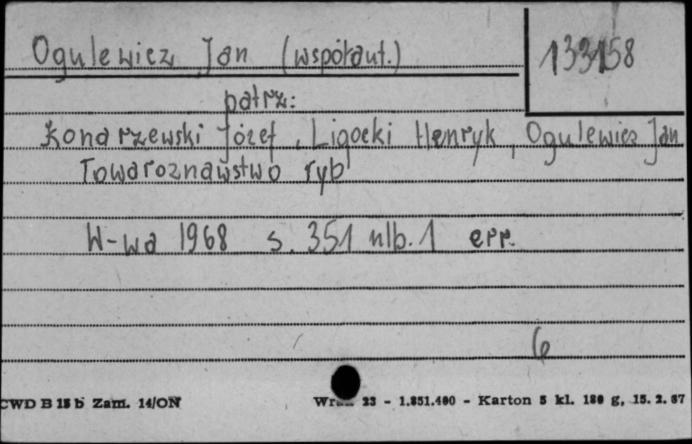 Ogulewicz Jan (współaut.)
133158
patrz:
Konarzewski Józef, Ligocki Henryk, Ogulewicz Jan
Towaroznawstwo ryb
W-wa 1968 s. 351 nlb. 1 err.
6
CWD B 18 b Zam. 14/ON
23 - 1.851.400 - Karton 5 kl. 180 g, 15. 2. 67